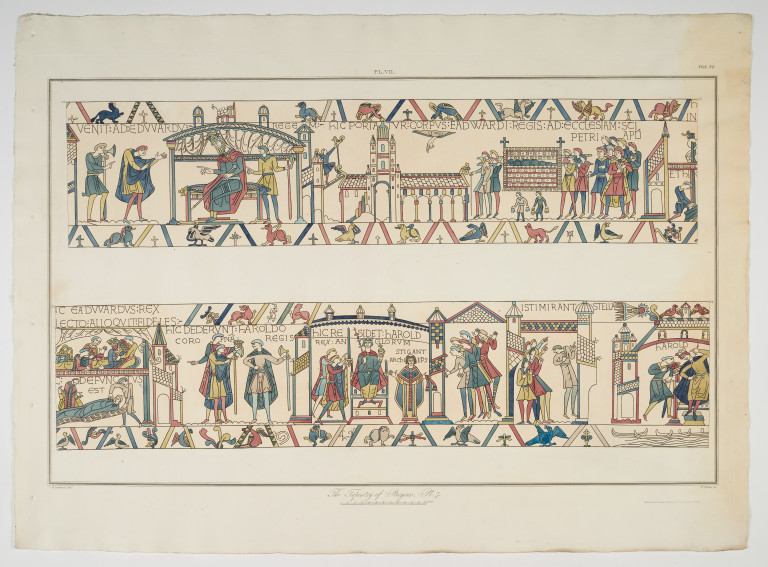 PL. VII.
VENIT: AD: EDVVARDV
REGE
HIC PORTATVR: CORPVS: EADWARDI: REGIS: AD: ECCLESIAM: SCI
PETRI APLI
IN
IC EADVVARDVS: REX
LECTO: ALLOQVIT: FIDELES:
DEFVNCTVS
EST
HIC DEDERVNT: hAROLDO
CORO NA REGIS
HIC RE SIDET: hAROLD
REX: AN GLORVM
STIGANT
ARChIEPS
ISTI MIRANT STELLA
HAROLD
The Tapestry of Bayeux. Pl. 7.